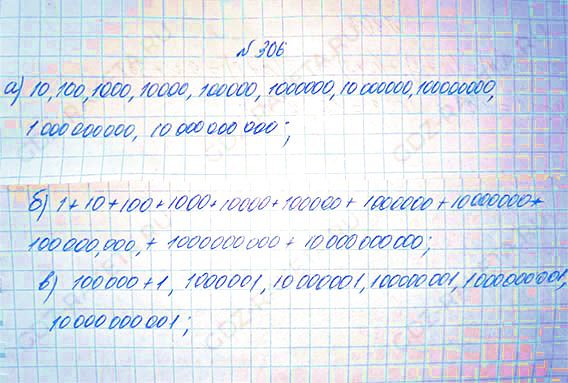 № 306
а) 10, 100, 1000, 10000, 100000, 1000000, 10 000000, 100000000,
1 000 000000, 10 000 000 000;
б) 1 + 10 + 100 + 1000 + 10000 + 100000 + 1000000 + 10000000 +
100 000,000, + 1000000000 + 10 000000000;
в) 100 000 + 1, 1000001, 10 000001, 100000001, 1000000001,
10 000 000 001;